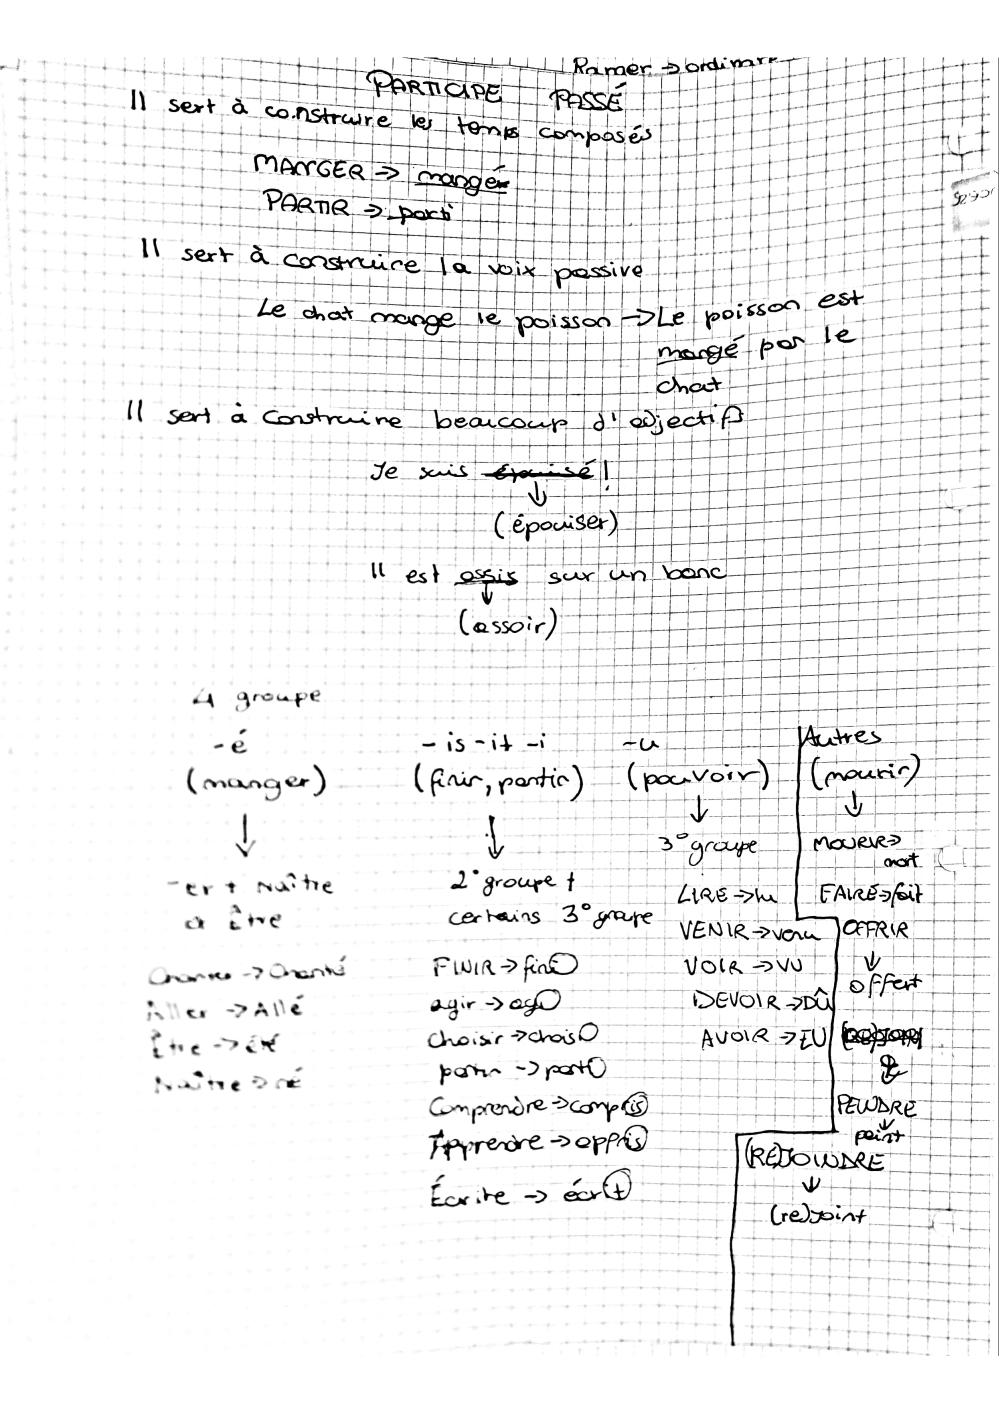 Ramer → ordinare
PARTICIPE PASSÉ
Il sert à construire les temps composés
MANGER → mangé
PARTIR → parti
Il sert à construire la voix passive
Le chat mange le poisson → Le poisson est
mangé par le
chat
Il sert à construire beaucoup d'adjectifs
Je suis épuisé!
↓
(épouiser)
Il est assis sur un banc
↓
(assoir)
4 groupe
-é -is -it -i -u Autres
(manger) (finir, partir) (pouvoir) (mourir)
↓ ↓ ↓ ↓
-er + Naître
et Être
Chanter → Chanté
Aller → Allé
Être → été
Naître → né
2° groupe +
certains 3° groupe
FINIR → fini
agir → agi
choisir → choisi
partir → parti
Comprendre → compris
Apprendre → appris
Écrite → écrit
3° groupe
LIRE → lu
VENIR → venu
VOIR → VU
DEVOIR → DÛ
AVOIR → EU
MOURIR →
mort
FAIRE → fait
OFFRIR
↓
offert
PEINDRE
↓
peint
(RE)JOINDRE
↓
(re)joint